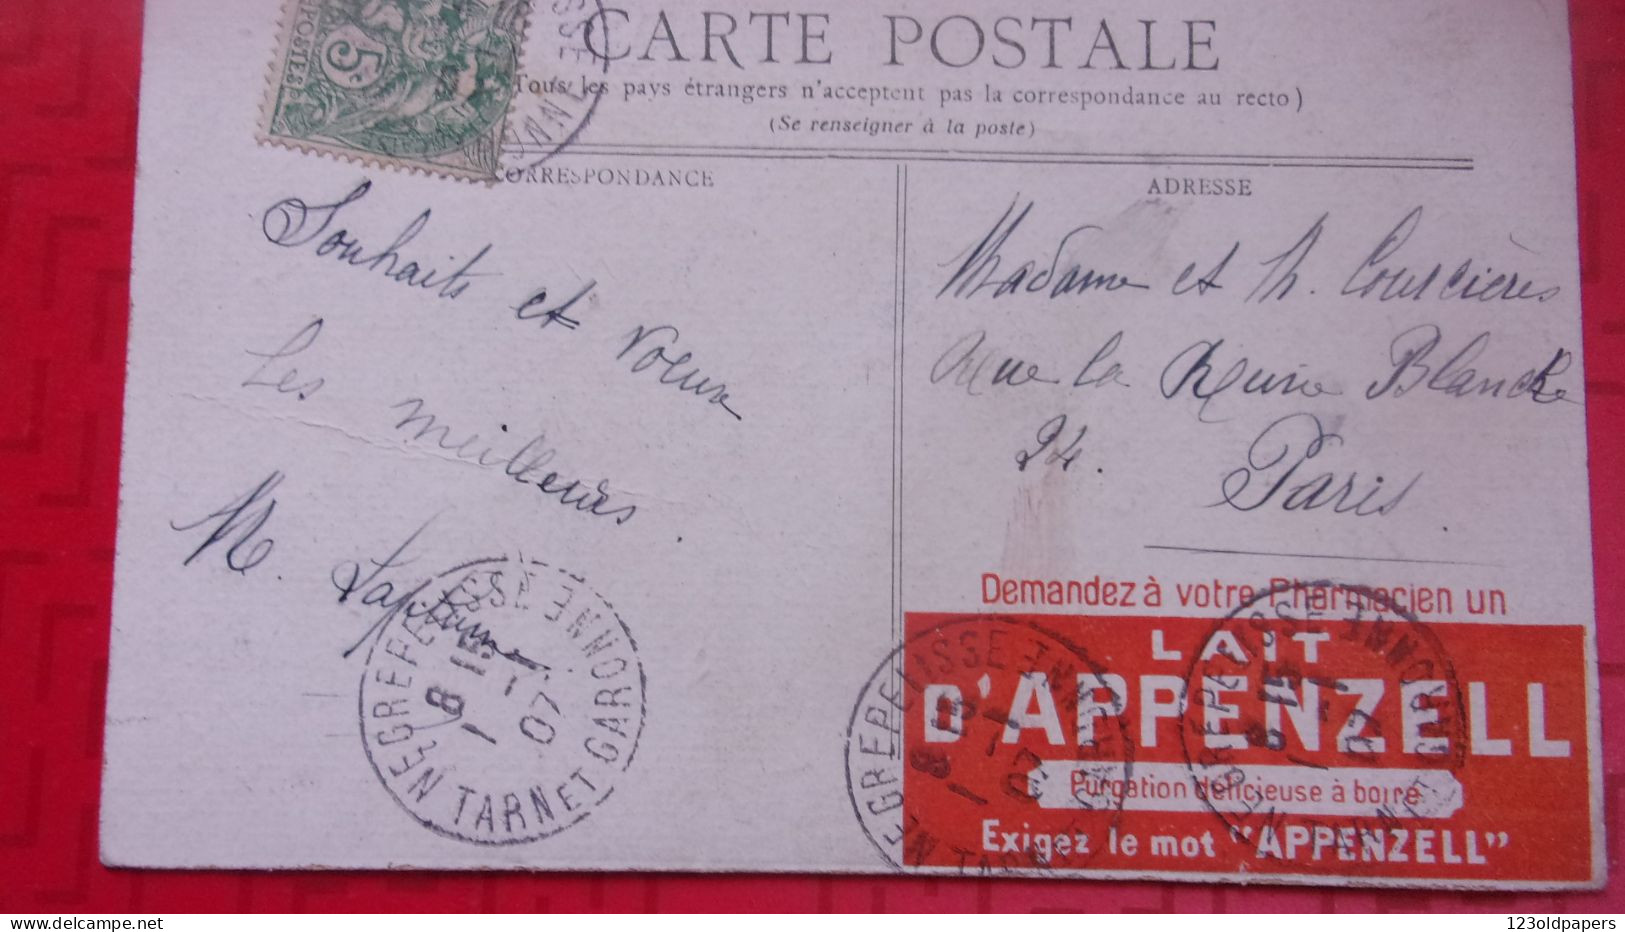 CARTE POSTALE
Tous les pays étrangers n'acceptent pas la correspondance au recto)
(Se renseigner à la poste)
POSTES
5c
CORRESPONDANCE
ADRESSE
Souhaits et voeux
Les meilleurs.
M.
Madame et M. Courcières
Rue la Reine Blanche
24.
Paris
NEGREPELISSE
TARN ET GARONNE
8 15
1 - 1
07
Demandez à votre Pharmacien un
LAIT
D'APPENZELL
Purgation délicieuse à boire
Exigez le mot "APPENZELL"
NEGREPELISSE
TARN ET GARONNE
8 15
1 - 1
07
NEGREPELISSE
TARN ET GARONNE
8 15
1 - 1
07
123oldpapers